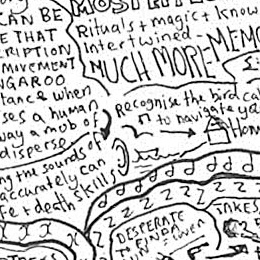 CAN BE
E THAT
RIPTION
MOVEMENT
NGAROO
tance when
ses a human
way a mob of
disperse
ng the sounds of
accurately can
fe + death skills
MOST
Rituals + magic + know
Intertwined -
MUCH MORE MEMO
Recognise the bird cal
to navigate ya
Hom
Z Z Z Z Z Z Z
DESPERATE
TO FIND A
TAKES